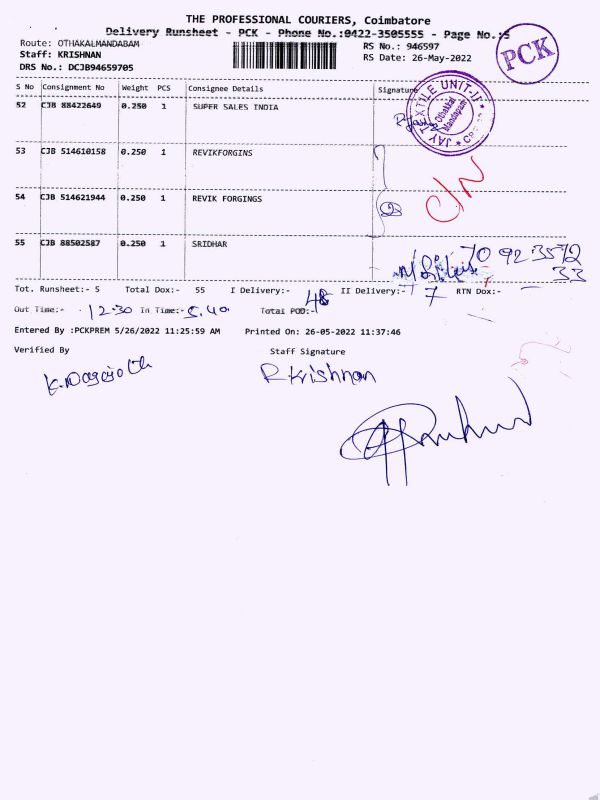 THE PROFESSIONAL COURIERS, Coimbatore
Delivery Runsheet - PCK - Phone No.:0422-3505555 - Page No.:5
Route: OTHAKALMANDABAM
RS No.: 946597
PCK
Staff: KRISHNAN
RS Date: 26-May-2022
DRS No.: DCJB94659705
S No Consignment No Weight PCS Consignee Details Signature
52 CJB 88422649 0.250 1 SUPER SALES INDIA
JAY TEXTILE UNIT-II
Othakkal Mandapam
53 CJB 514610158 0.250 1 REVIKFORGINS
C/N
54 CJB 514621944 0.250 1 REVIK FORGINGS
55 CJB 88502587 0.250 1 SRIDHAR
70 92 35 72
33
Tot. Runsheet:- 5 Total Dox:- 55 I Delivery:- 48 II Delivery:- 7 RTN Dox:-
Out Time:- 12:30 In Time:- 5.40 Total POD:-
Entered By :PCKPREM 5/26/2022 11:25:59 AM Printed On: 26-05-2022 11:37:46
Verified By Staff Signature
R Krishnan